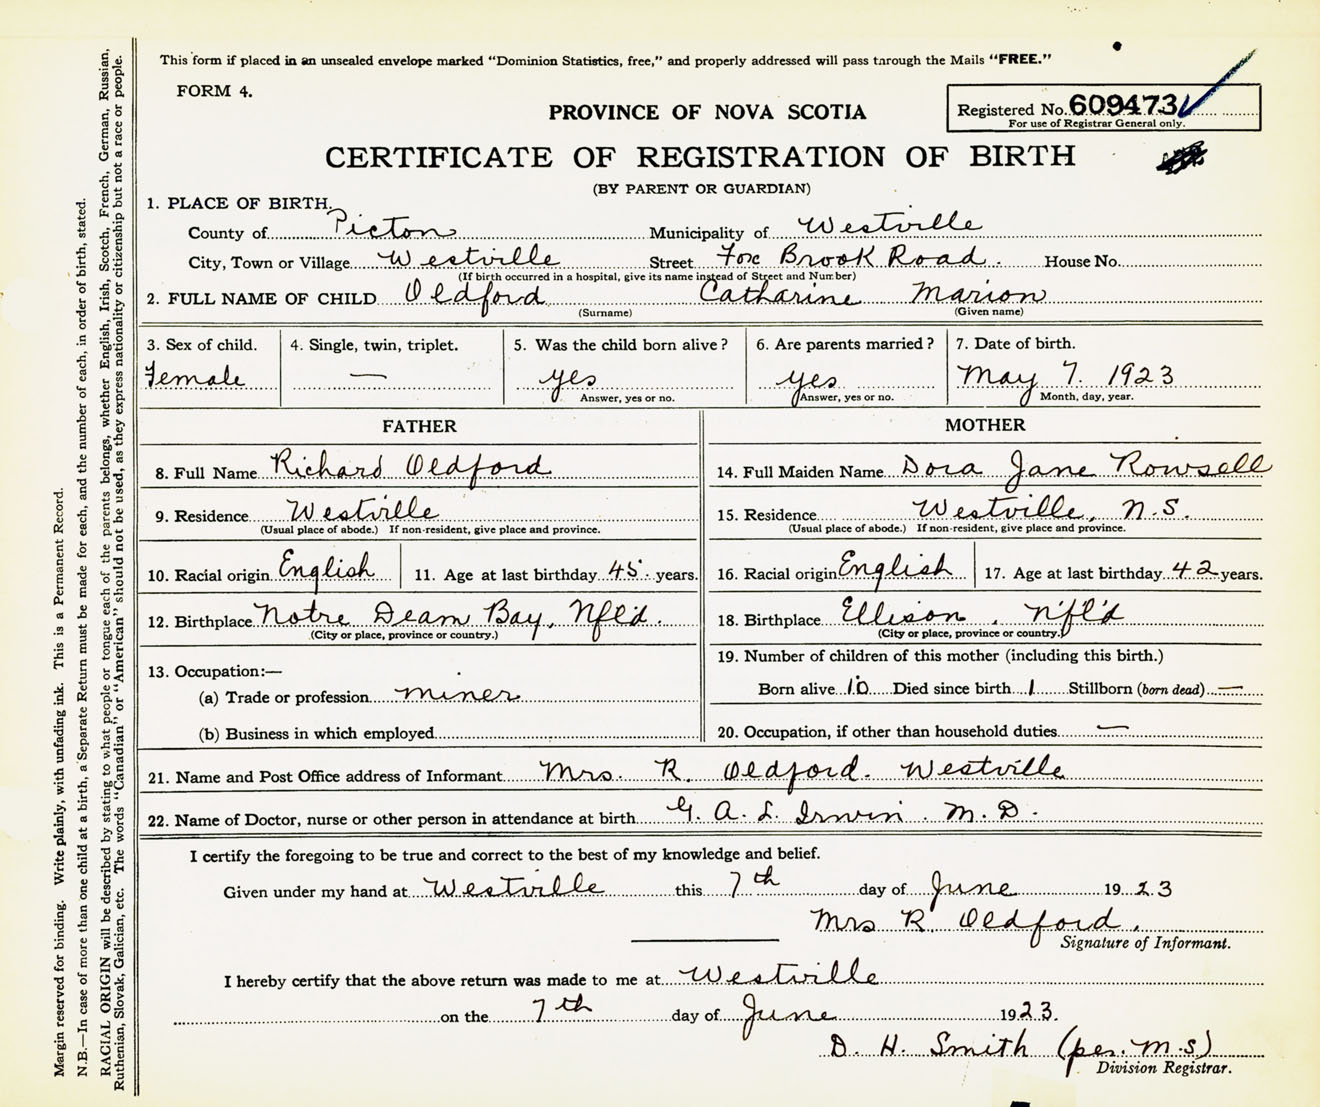 This form if placed in an unsealed envelope marked "Dominion Statistics, free," and properly addressed will pass through the Mails "FREE."
FORM 4.
PROVINCE OF NOVA SCOTIA
Registered No. 609473
For use of Registrar General only.
CERTIFICATE OF REGISTRATION OF BIRTH
(BY PARENT OR GUARDIAN)
1. PLACE OF BIRTH.
County of Picton Municipality of Westville
City, Town or Village Westville Street Fox Brook Road. House No.
(If birth occurred in a hospital, give its name instead of Street and Number)
2. FULL NAME OF CHILD Oldford Catharine Marion
(Surname) (Given name)
3. Sex of child. 4. Single, twin, triplet. 5. Was the child born alive? 6. Are parents married? 7. Date of birth.
Female — yes yes May 7. 1923
Answer, yes or no. Answer, yes or no. Month, day, year.
FATHER MOTHER
8. Full Name Richard Oldford 14. Full Maiden Name Dora Jane Rowsell
9. Residence Westville 15. Residence Westville, N.S.
(Usual place of abode.) If non-resident, give place and province. (Usual place of abode.) If non-resident, give place and province.
10. Racial origin English 11. Age at last birthday 45 years. 16. Racial origin English 17. Age at last birthday 42 years.
12. Birthplace Notre Deam Bay, Nfl'd. 18. Birthplace Ellison, N'fl'd
(City or place, province or country.) (City or place, province or country.)
19. Number of children of this mother (including this birth.)
13. Occupation:—
(a) Trade or profession miner Born alive 10 Died since birth 1 Stillborn (born dead) —
(b) Business in which employed 20. Occupation, if other than household duties —
21. Name and Post Office address of Informant Mrs. R. Oldford. Westville
22. Name of Doctor, nurse or other person in attendance at birth G. A. L. Irwin. M.D.
I certify the foregoing to be true and correct to the best of my knowledge and belief.
Given under my hand at Westville this 7th day of June 1923
Mrs R. Oldford.
Signature of Informant.
I hereby certify that the above return was made to me at Westville
on the 7th day of June 1923.
D. H. Smith (per. M.S)
Division Registrar.
Margin reserved for binding. Write plainly, with unfading ink. This is a Permanent Record.
N.B.—In case of more than one child at a birth, a Separate Return must be made for each, and the number of each, in order of birth, stated.
RACIAL ORIGIN will be described by stating to what people or tongue each of the parents belongs, whether English, Irish, Scotch, French, German, Russian,
Ruthenian, Slovak, Galician, etc. The words "Canadian" or "American" should not be used, as they express nationality or citizenship but not a race or people.